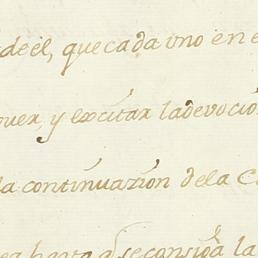 de él, que cada uno en e
over, y excitar la devoció
la continuazion de la C
hasta q̃ se consiga la